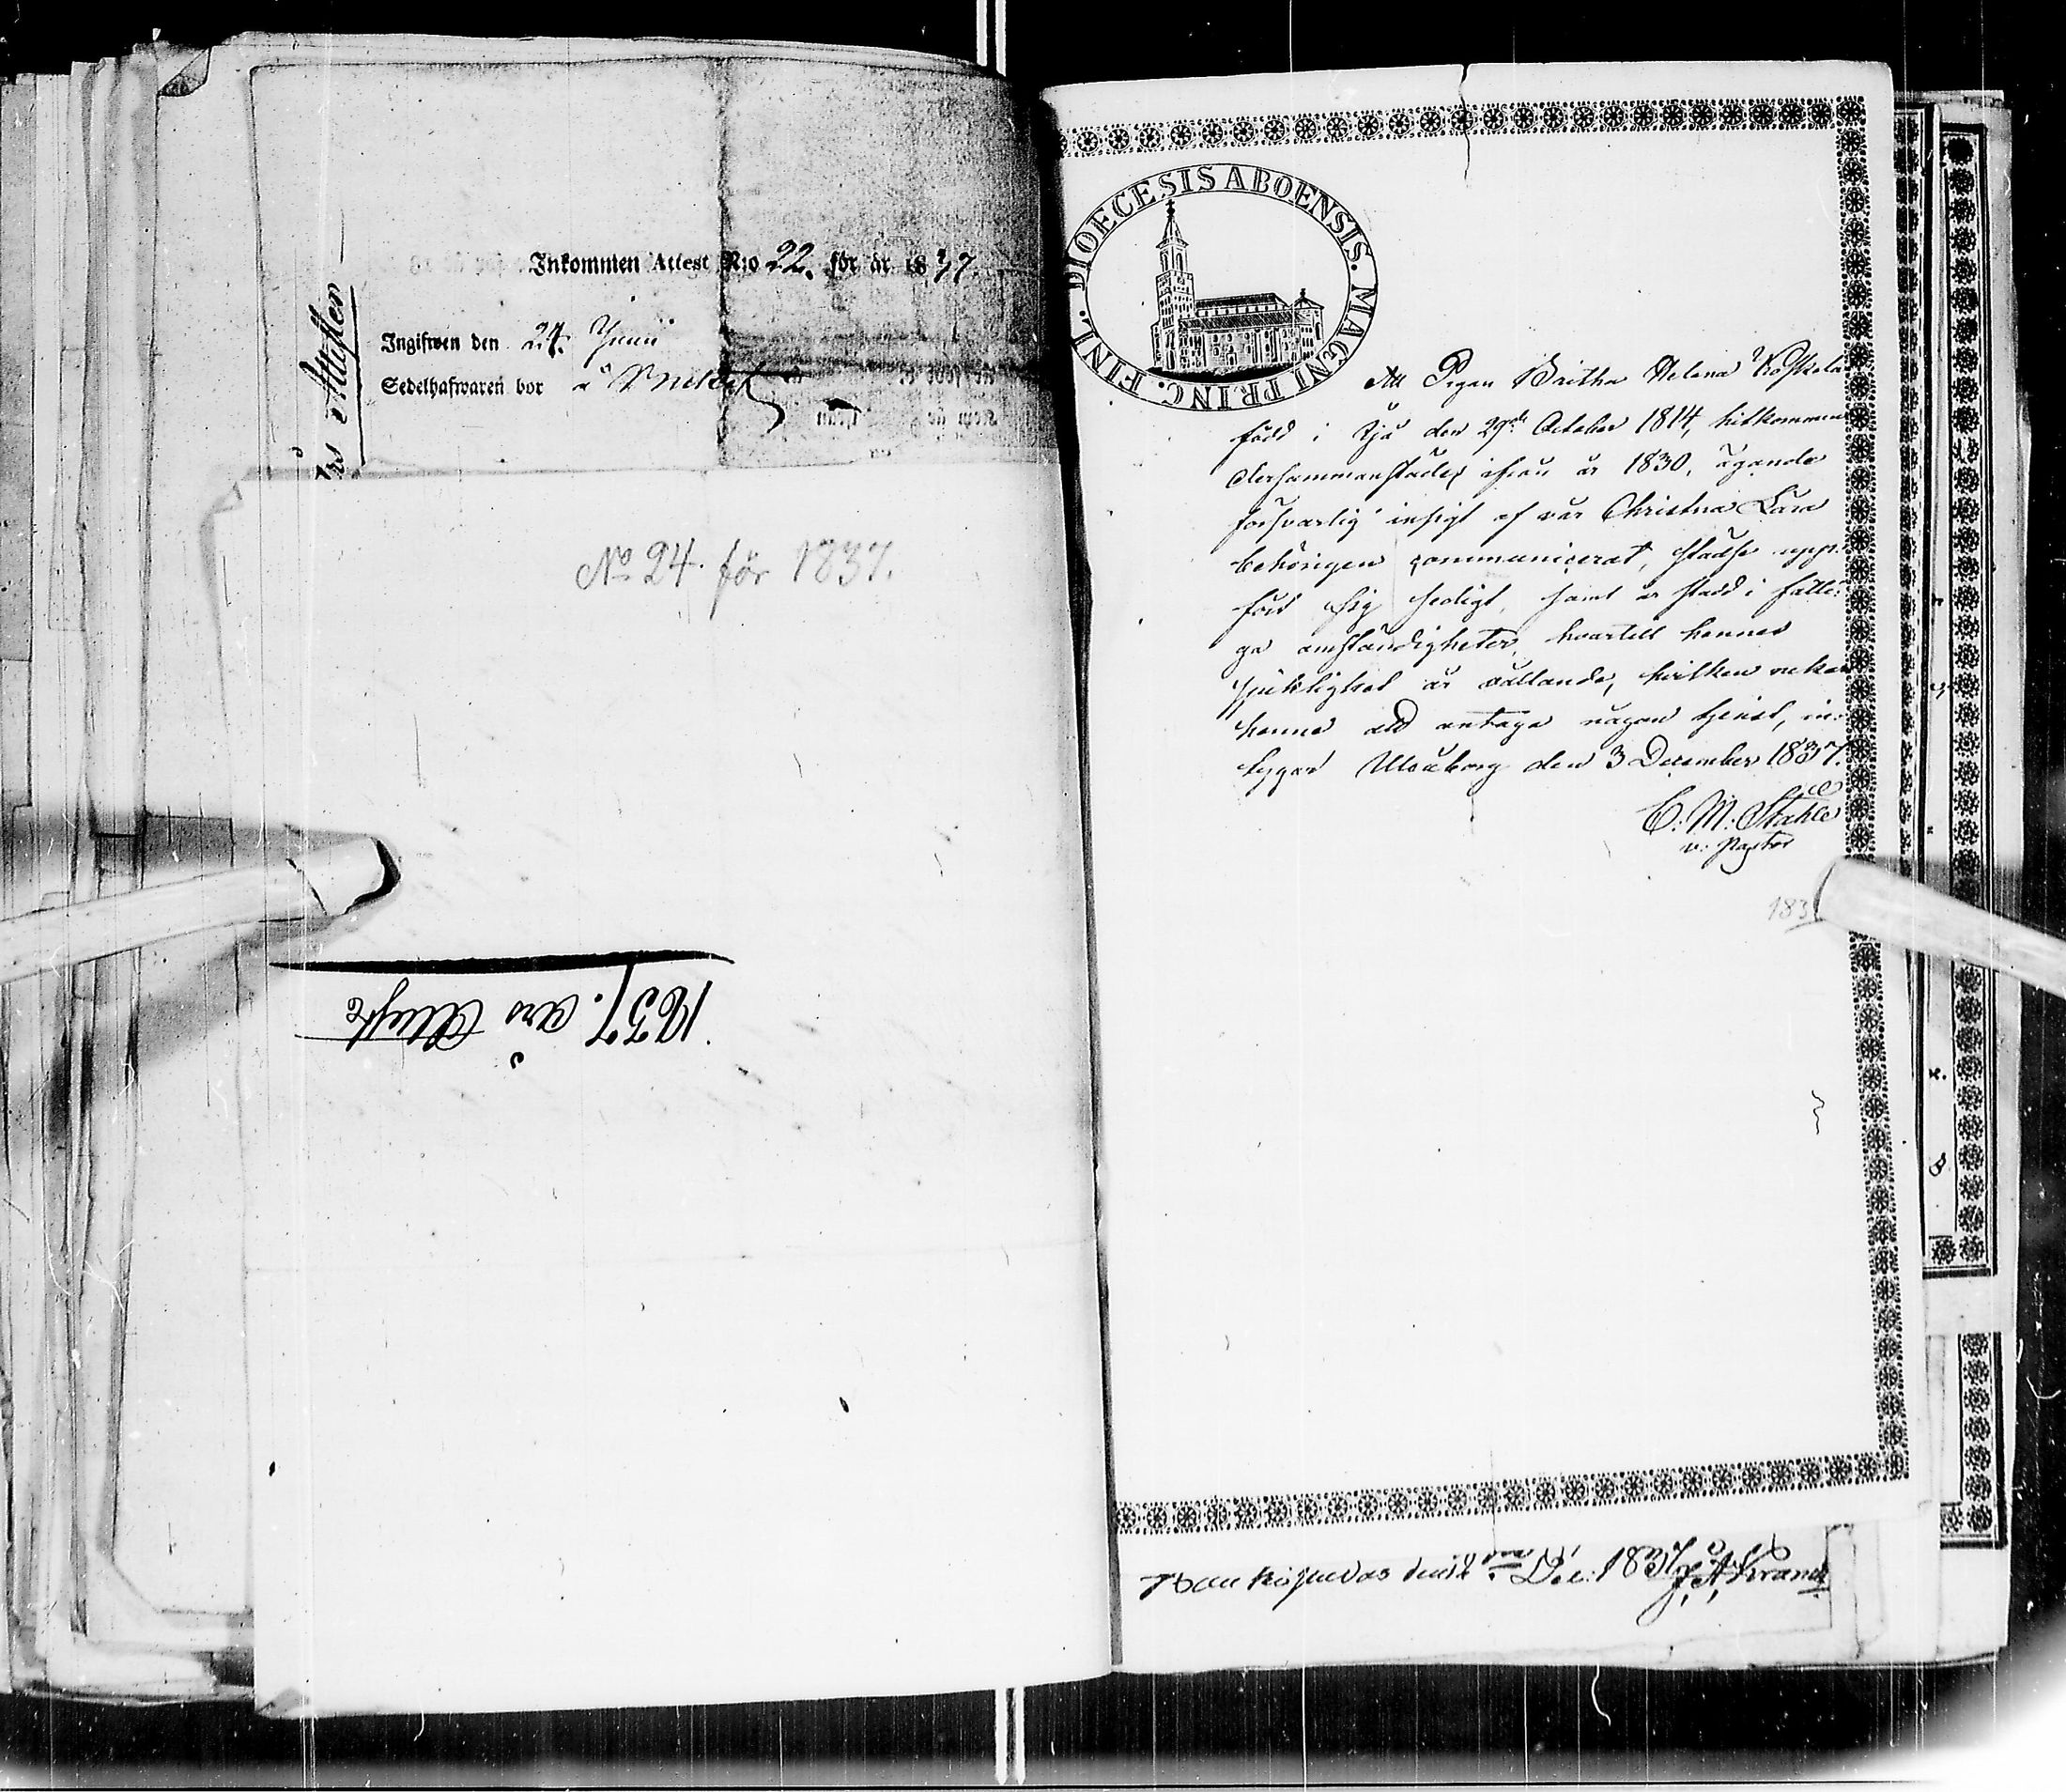 Inkommen Attest N:o 22. för år 1837.
Ingifwen den 24. Junii
Sedelhafwaren bor å
Års Attester
No 24. för 1837.
1837. års
DIOECESIS ABOENSIS. MAGNI PRINC. FINL.
Att Pigan Britha Helena Koskela
född i Ijå den 29de October 1814, hitkommen
ifrån år 1830, ägande
försvarlig insigt af vår Christna Lära
behörigen communicerat, städse upp-
fört sig sedigt, samt är stadd i fatti-
ga omständigheter, hvartill hennes
sjuklighet är vållande, hvilken nekar
henne att antaga någon tjenst, in-
tygar Uleåborg den 3 December 1837.
C: M: Ståhle
v: Pastor
183
Dec: 1837